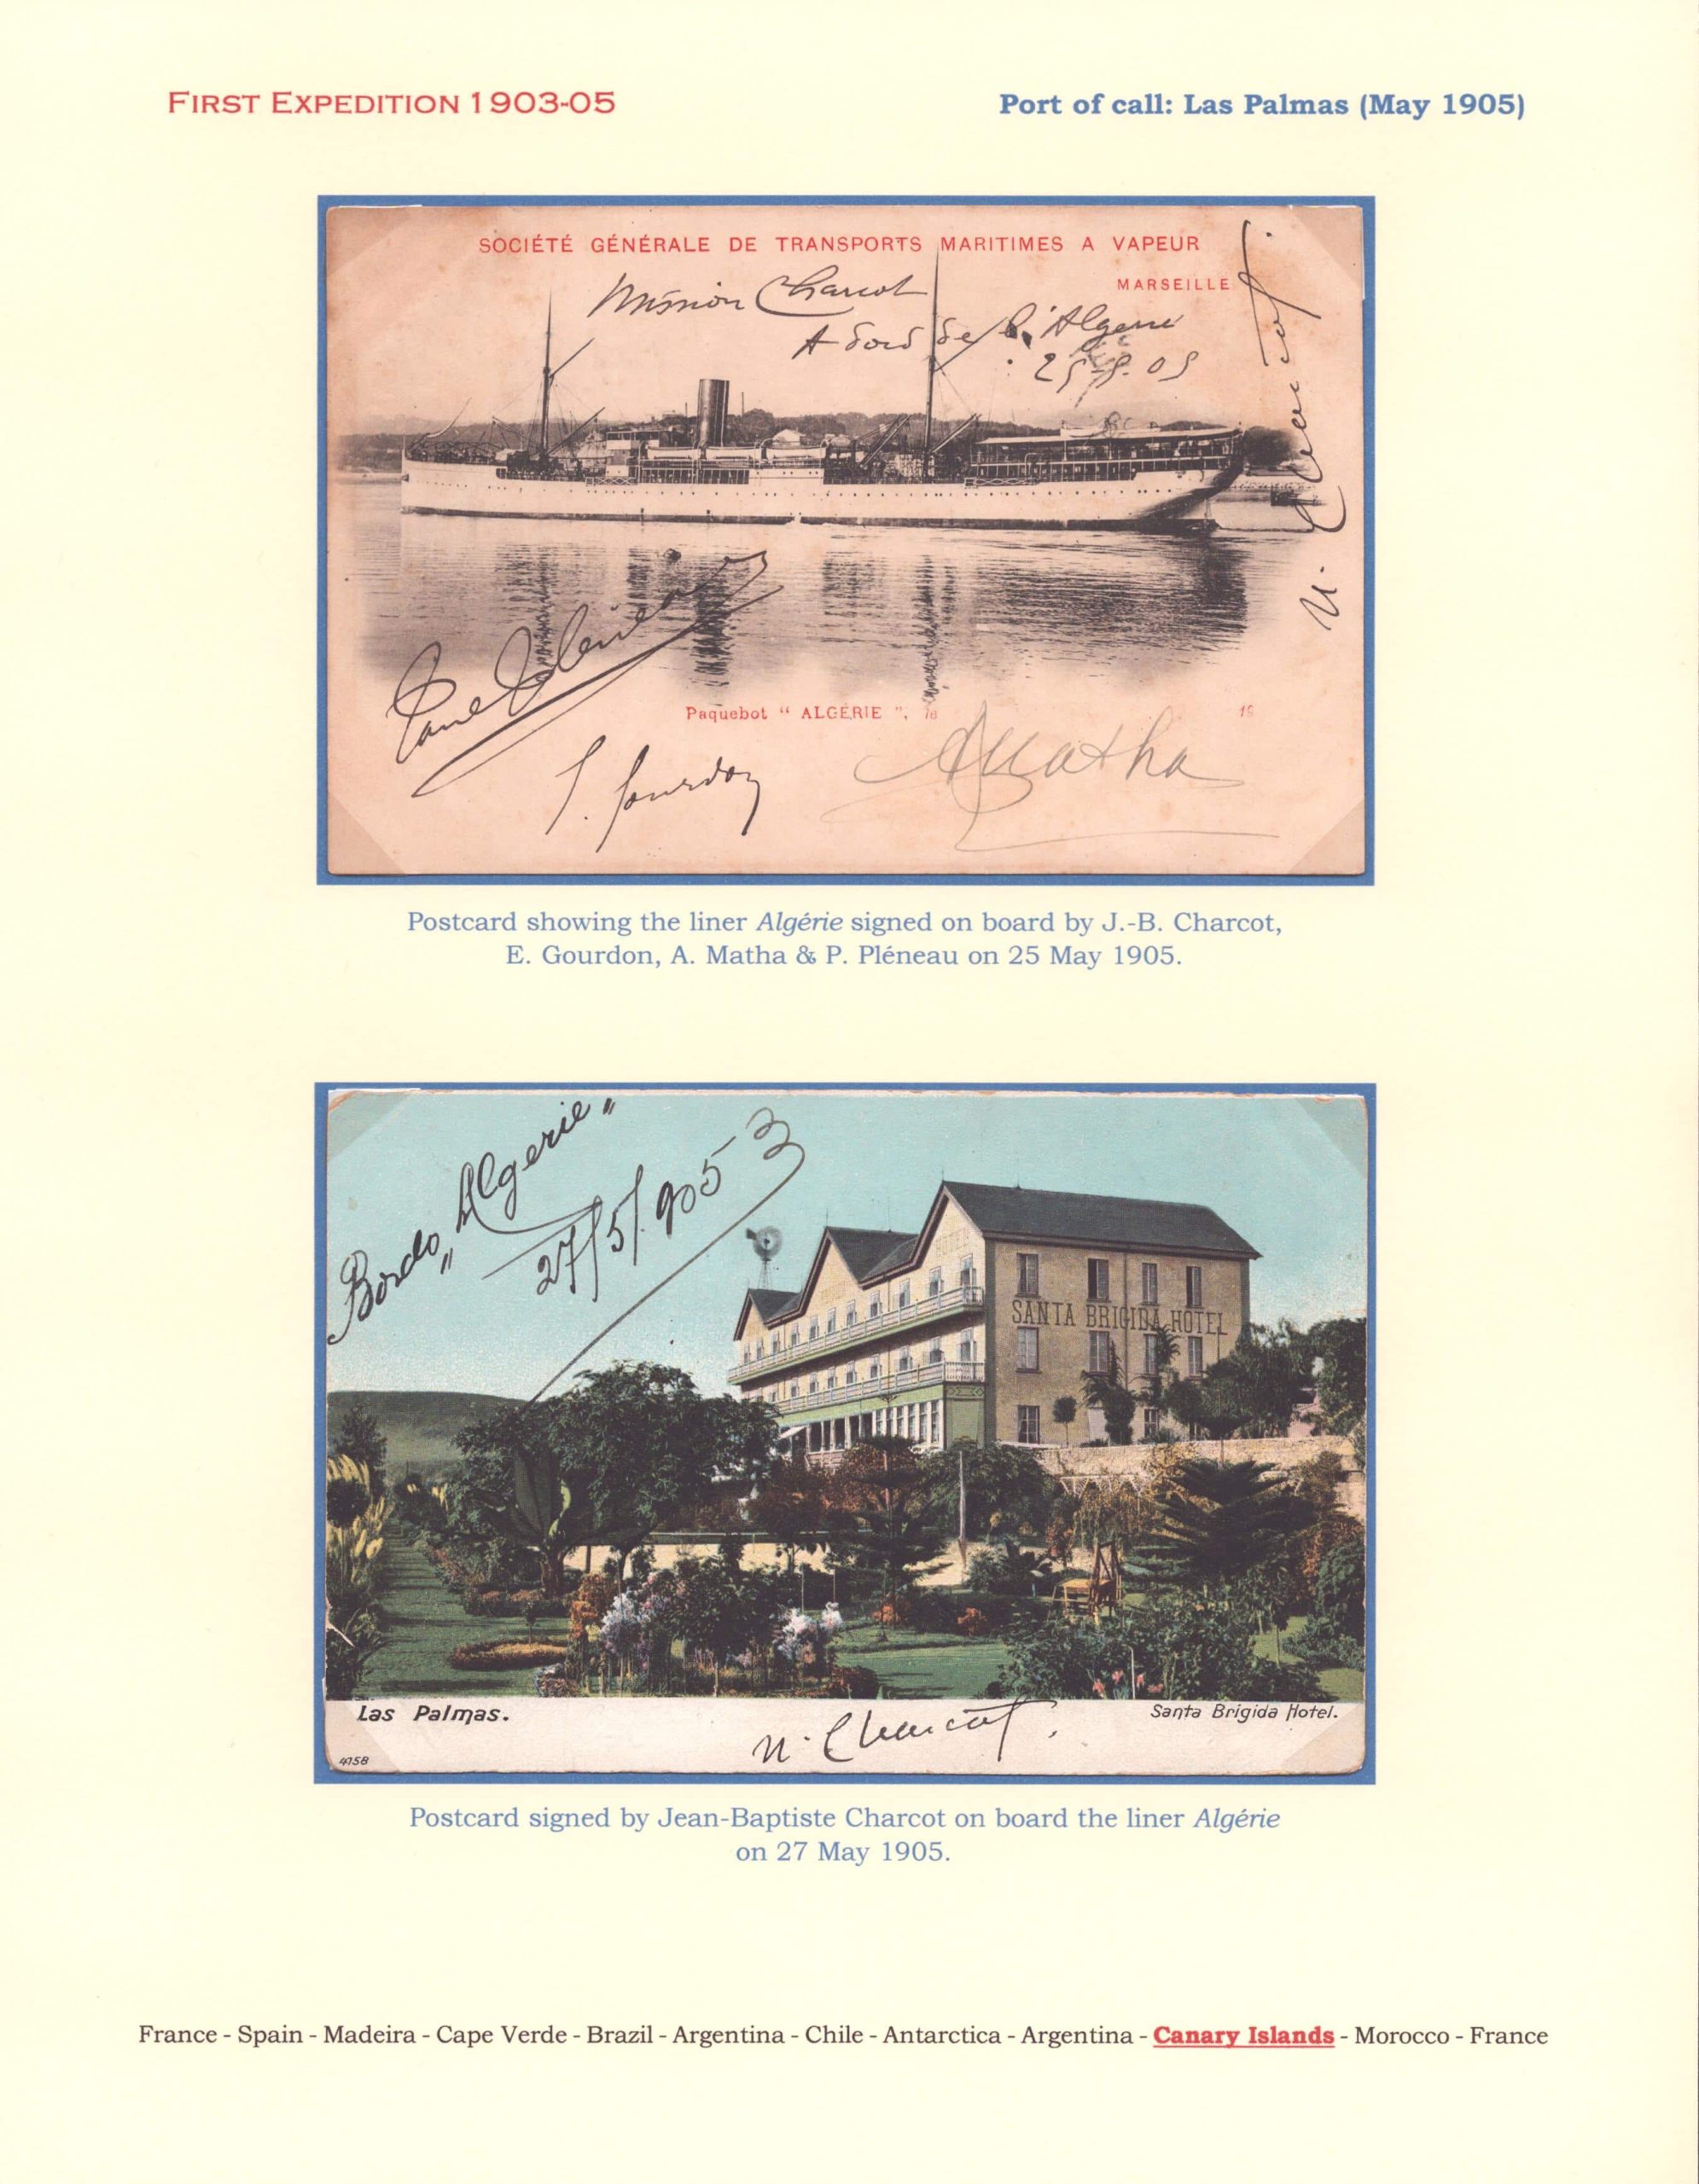 FIRST EXPEDITION 1903-05
Port of call: Las Palmas (May 1905)
SOCIÉTÉ GÉNÉRALE DE TRANSPORTS MARITIMES A VAPEUR
MARSEILLE
Mission Charcot
A bord de l'Algerie
25-5-05
J. Charcot
Paul Pléneau
E. Gourdon
AMatha
Paquebot “ ALGÉRIE ”, le
19
Postcard showing the liner Algérie signed on board by J.-B. Charcot,
E. Gourdon, A. Matha & P. Pléneau on 25 May 1905.
Bordo „Algerie"
27/5/.905
SANTA BRIGIDA HOTEL
HOTEL
Las Palmas.
Santa Brigida Hotel.
J. Charcot.
4758
Postcard signed by Jean-Baptiste Charcot on board the liner Algérie
on 27 May 1905.
France - Spain - Madeira - Cape Verde - Brazil - Argentina - Chile - Antarctica - Argentina - Canary Islands - Morocco - France